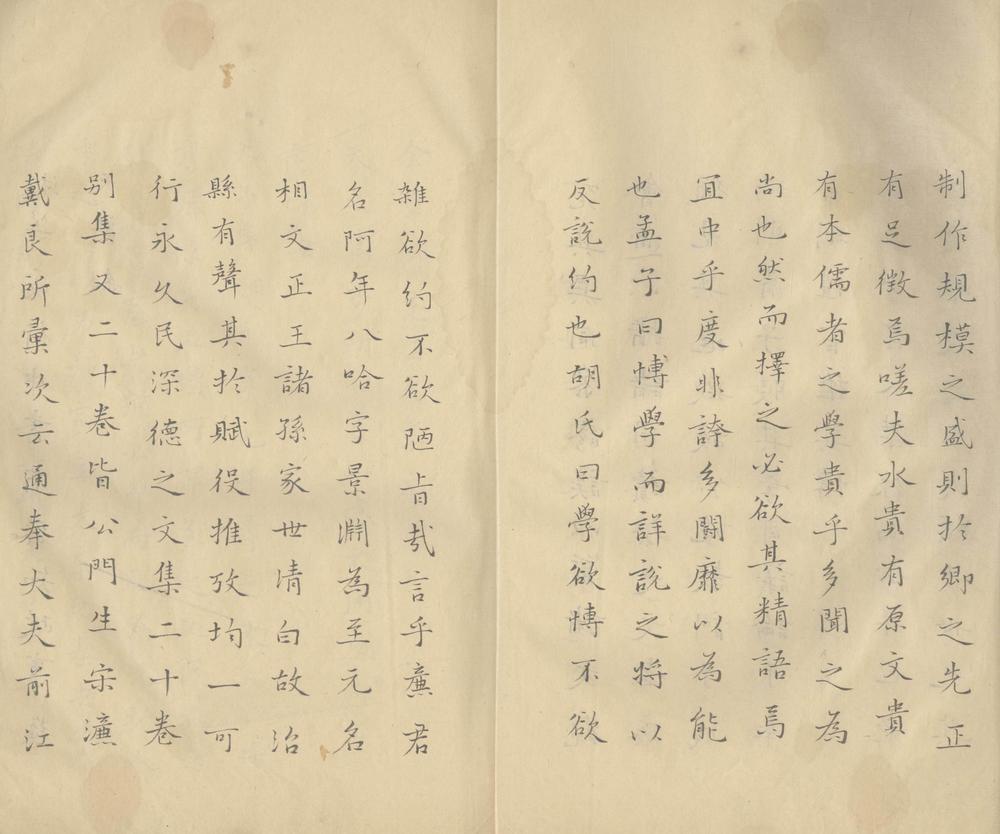 制作規模之盛則於鄉之先正
有足徵焉嗟夫水貴有原文貴
有本儒者之學貴乎多聞之為
尚也然而擇之必欲其精語焉
宜中乎度非誇多鬭靡以為能
也孟子曰博學而詳說之將以
反說約也胡氏曰學欲博不欲
雜欲約不欲陋旨哉言乎廉君
名阿年八哈字景淵為至元名
相文正王諸孫家世清白故治
縣有聲其於賦役推攷均一可
行永久民深德之文集二十卷
別集又二十卷皆公門生宋濂
戴良所彙次云通奉大夫前江